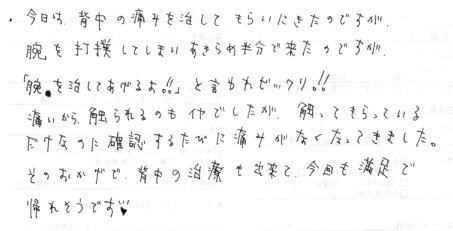 ・今日は、背中の痛みを治して もらいにきたのですが、
腕を打撲してしまい あきらめ半分で来たのですが、
「腕を治してあげるよ!!」と言われビックリ!!
痛いから、触られるのもイヤでしたが、触ってもらっている
だけなのに確認するたびに痛みがなくなってきました。
そのおかげで、背中の治療も出来て、今日も満足で
帰れそうです♥